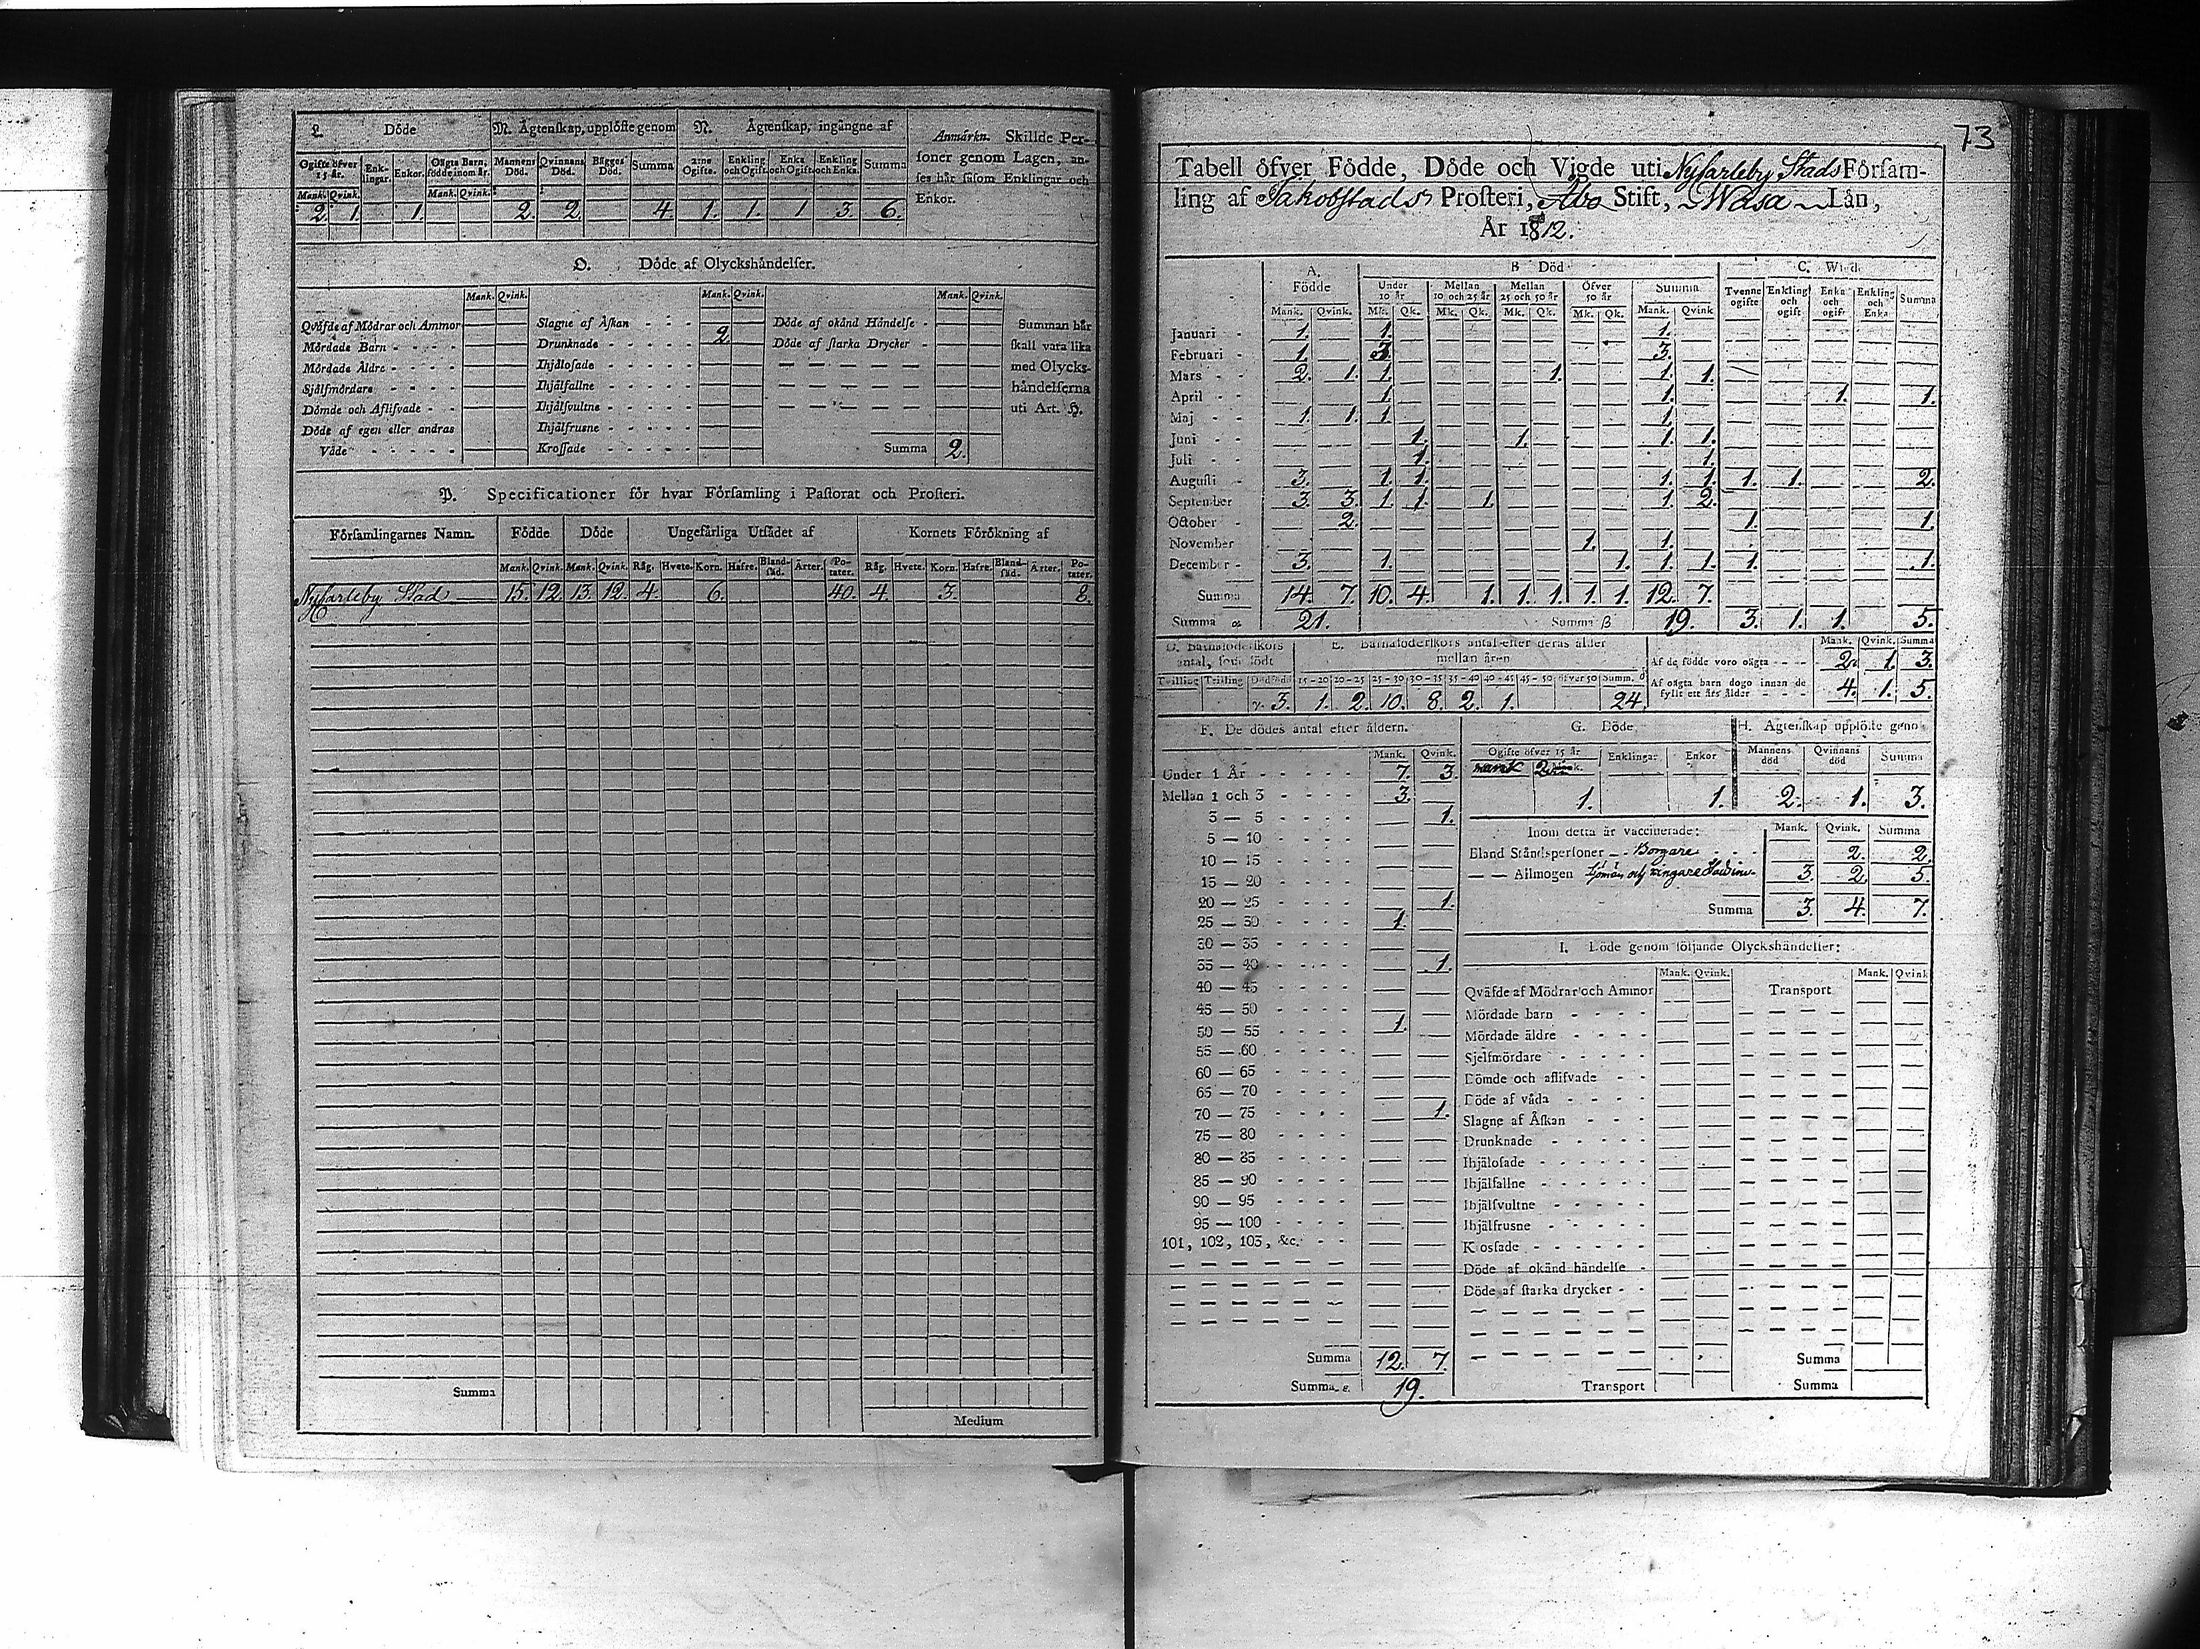 L. Döde
M. Ägtenskap, uplöste genom
N. Ägtenskap, ingångne af
Anmärkn. Skillde Per-
soner genom Lagen, an-
ses här såsom Enklingar och
Enkor.
Ogifte öfver 15 år.
Enk-lingar.
Enkor.
Oägta Barn, födde inom år.
Mannens Död.
Qvinnans Död.
Bägges Död.
Summa
2:ne Ogifte.
Enkling och Ogift.
Enka och Ogift.
Enkling och Enka.
Summa
Mank. Qvink. Mank. Qvink.
2. 1. 1. 2. 2. 4. 1. 1. 1 3. 6.
O. Döde af Olyckshändelser.
Mank. Qvink. Mank. Qvink. Mank. Qvink.
Qväfde af Mödrar och Ammor
Mördade Barn
Mördade Äldre
Sjålfmördare
Dömde och Aflifvade
Döde af egen eller andras
Våde
Slagne af Åskan
Drunknade 2.
Ihjålosade
Ihjålfallne
Ihjålfvultne
Ihjålfrusne
Krossade
Döde af okånd Håndelse
Döde af starka Drycker
Summa 2.
Summan hår
skall vara lika
med Olycks-
håndelserna
uti Art. H.
P. Specificationer för hvar Församling i Pastorat och Prosteri.
Församlingarnes Namn. Födde Döde Ungefärliga Utsädet af Kornets Förökning af
Mank. Qvink. Mank. Qvink. Råg. Hvete. Korn. Hafre. Bland-såd. Ärter. Po-tater. Råg. Hvete. Korn. Hafre. Bland-såd. Ärter. Po-tater.
Nykarleby Stad 15. 12. 13. 12. 4. 6. 40. 4. 3. 8.
Summa
Medium
73
Tabell öfver Födde, Döde och Vigde uti Nykarleby Stads Församling af Jakobstads Prosteri, Åbo Stift, Wasa Län,
År 1812.
A. Födde
B Död
C. Wigde
Under 10 år
Mellan 10 och 25 år
Mellan 25 och 50 år
Öfver 50 år
Summa
Tvenne ogifte
Enkling och ogift
Enka och ogift
Enkling och Enka
Summa
Mank. Qvink. Mk. Qk. Mk. Qk. Mk. Qk. Mk. Qk. Mank. Qvink
Januari 1. 1. 1.
Februari 1. 3. 3.
Mars 2. 1. 1. 1. 1. 1.
April 1. 1. 1. 1.
Maj 1. 1. 1. 1.
Juni 1. 1. 1. 1.
Juli 1. 1.
Augusti 3. 1. 1. 1. 1. 1. 1. 2.
September 3. 3. 1. 1. 1. 1. 2.
October 2. 1. 1.
November 1. 1.
December 3. 1. 1. 1. 1. 1. 1.
Summa 14. 7. 10. 4. 1. 1. 1. 1. 1. 12. 7.
Summa α 21. Summa β 19. 3. 1. 1. 5.
D. Barnaföderskors antal, som födt
E. Barnaföderskors antal efter deras ålder
mellan åren
Tvilling Trilling Dödfödd 15-20 20-25 25-30 30-35 35-40 40-45 45-50 öfver 50 Summ. δ
γ. 3. 1. 2. 10. 8. 2. 1. 24.
Mank. Qvink. Summa
Af de födde voro oägta 2. 1. 3.
Af oägta barn dogo innan de fyllt ett års ålder 4. 1. 5.
F. De dödes antal efter åldern.
Mank. Qvink.
Under 1 År 7. 3.
Mellan 1 och 3 3.
3 — 5 1.
5 — 10
10 — 15
15 — 20
20 — 25 1.
25 — 30 1.
30 — 35
35 — 40 1.
40 — 45
45 — 50
50 — 55 1.
55 — 60
60 — 65
65 — 70
70 — 75 1.
75 — 80
80 — 85
85 — 90
90 — 95
95 — 100
101, 102, 103, &c.
Summa 12. 7.
Summa ε. 19.
G. Döde
Ogifte öfver 15 år
Enklingar
Enkor
1. 1.
H. Ägtenskap upplöste genom
Mannens död
Qvinnans död
Summa
2. 1. 3.
Inom detta år vaccinerade: Mank. Qvink. Summa
Bland Ståndspersoner — Borgare 2. 2.
— — Allmogen 3. 2. 5.
Summa 3. 4. 7.
I. Döde genom följande Olyckshändelser:
Mank. Qvink. Mank. Qvink
Qväfde af Mödrar och Ammor
Mördade barn
Mördade äldre
Sjelfmördare
Dömde och aflifvade
Döde af våda
Slagne af Åskan
Drunknade
Ihjälosade
Ihjälfallne
Ihjälsvultne
Ihjälfrusne
Krossade
Döde af okänd händelse
Döde af starka drycker
Transport
Transport
Summa
Summa